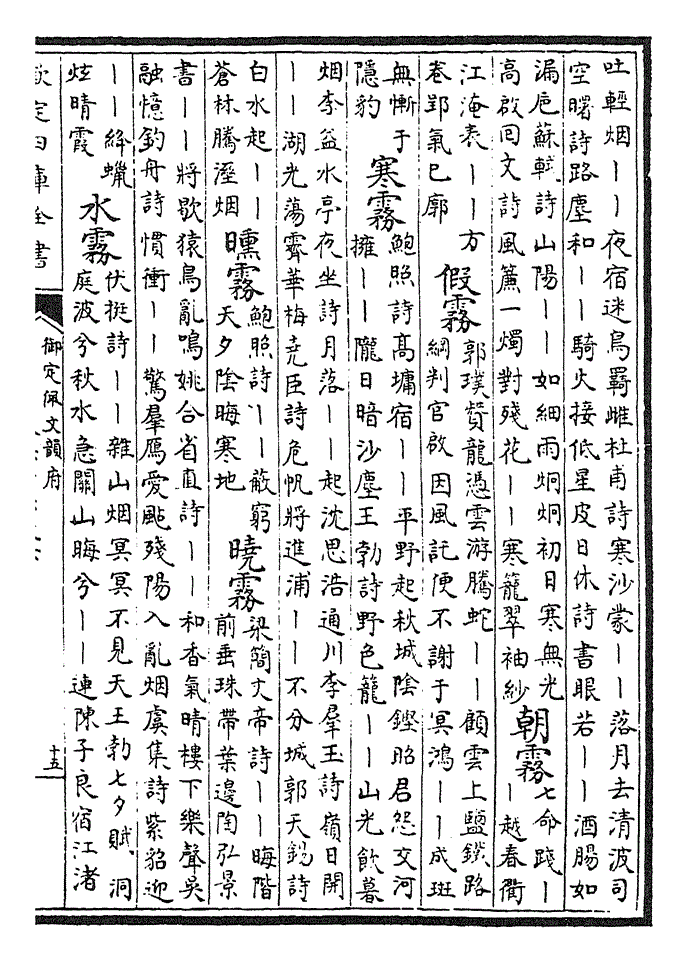 吐輕烟——夜宿迷烏羇雌杜甫詩寒沙蒙——落月去清波司
空曙詩路塵和——騎火接低星皮日休詩書眼若——酒腸如
漏巵蘇軾詩山陽——如細雨炯炯初日寒無光
高啟回文詩風簾一燭對殘花——寒籠翠袖紗
朝霧
七命踐—
—越春衢
江淹表——方
卷郢氣已廓
假霧
郭璞贊龍憑雲游騰蛇——顧雲上鹽鐵路
綱判官啟因風託便不謝于冥鴻——成斑
無慚于
隱豹
寒霧
鮑照詩髙墉宿——平野起秋城陰鏗昭君怨交河
擁——隴日暗沙塵王勃詩野色籠——山光飲暮
烟李益水亭夜坐詩月落——起沈思浩通川李羣玉詩嶺日開
——湖光蕩霽華梅堯臣詩危帆將進浦——不分城郭天錫詩
白水起——
蒼林騰溼烟
曛霧
鮑照詩——蔽窮
天夕陰晦寒地
曉霧
梁簡文帝詩——晦階
前垂珠帶葉邊陶弘景
書——將歇猿鳥亂鳴姚合省直詩——和香氣晴樓下樂聲吳
融憶釣舟詩慣衝——驚羣鴈愛颭殘陽入亂烟虞集詩紫貂迎
——絳蠟
炫晴霞
水霧
伏挺詩——雜山烟冥冥不見天王勃七夕賦洞
庭波兮秋水急關山晦兮——連陳子良宿江渚
欽定四庫全書
御定佩文韻府
十五